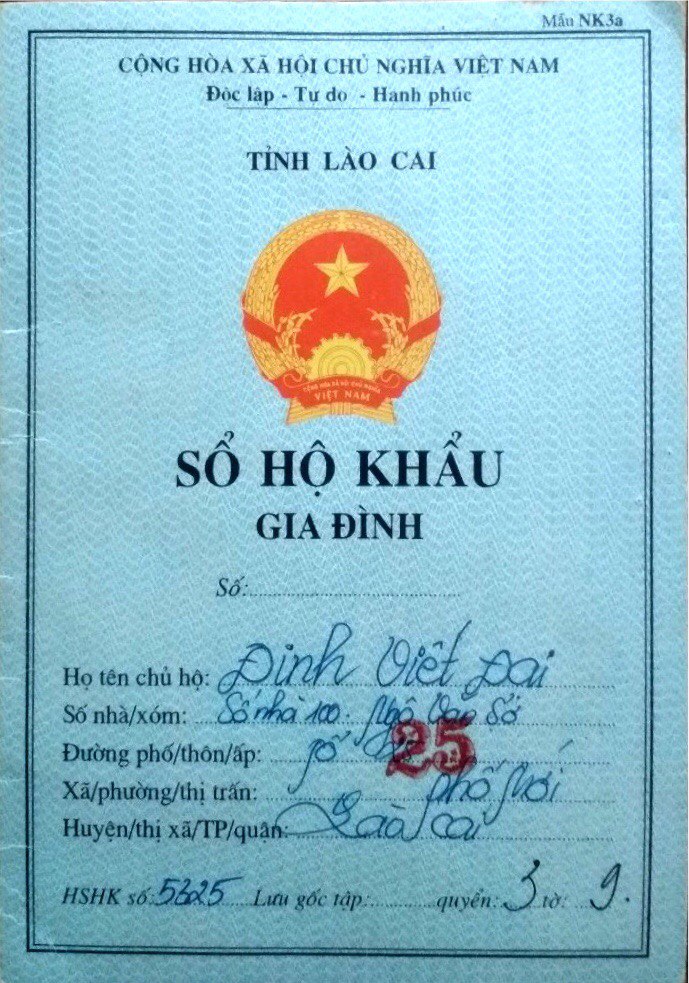 Mẫu NK3a
CỘNG HÒA XÃ HỘI CHỦ NGHĨA VIỆT NAM
Độc lập - Tự do - Hạnh phúc
TỈNH LÀO CAI
CỘNG HÒA XÃ HỘI CHỦ NGHĨA
VIỆT NAM
SỔ HỘ KHẨU
GIA ĐÌNH
Số:
Họ tên chủ hộ: Đinh Viết Đai
Số nhà/xóm: Số nhà 100 - Ngô Văn Sở
Đường phố/thôn/ấp: Tổ 25
Xã/phường/thị trấn: phố Mới
Huyện/thị xã/TP/quận: Lào cai
HSHK số: 5325 Lưu gốc tập: quyển: 3 tờ: 9.